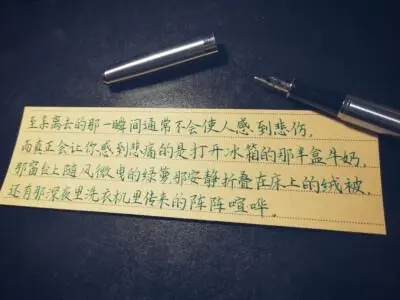 至亲离去的那一瞬间通常不会使人感到悲伤,
而真正会让你感到悲痛的是打开冰箱的那半盒牛奶,
那窗台上随风微曳的绿萝,那安静折叠在床上的绒被,
还有那深夜里洗衣机里传来的阵阵喧哗。